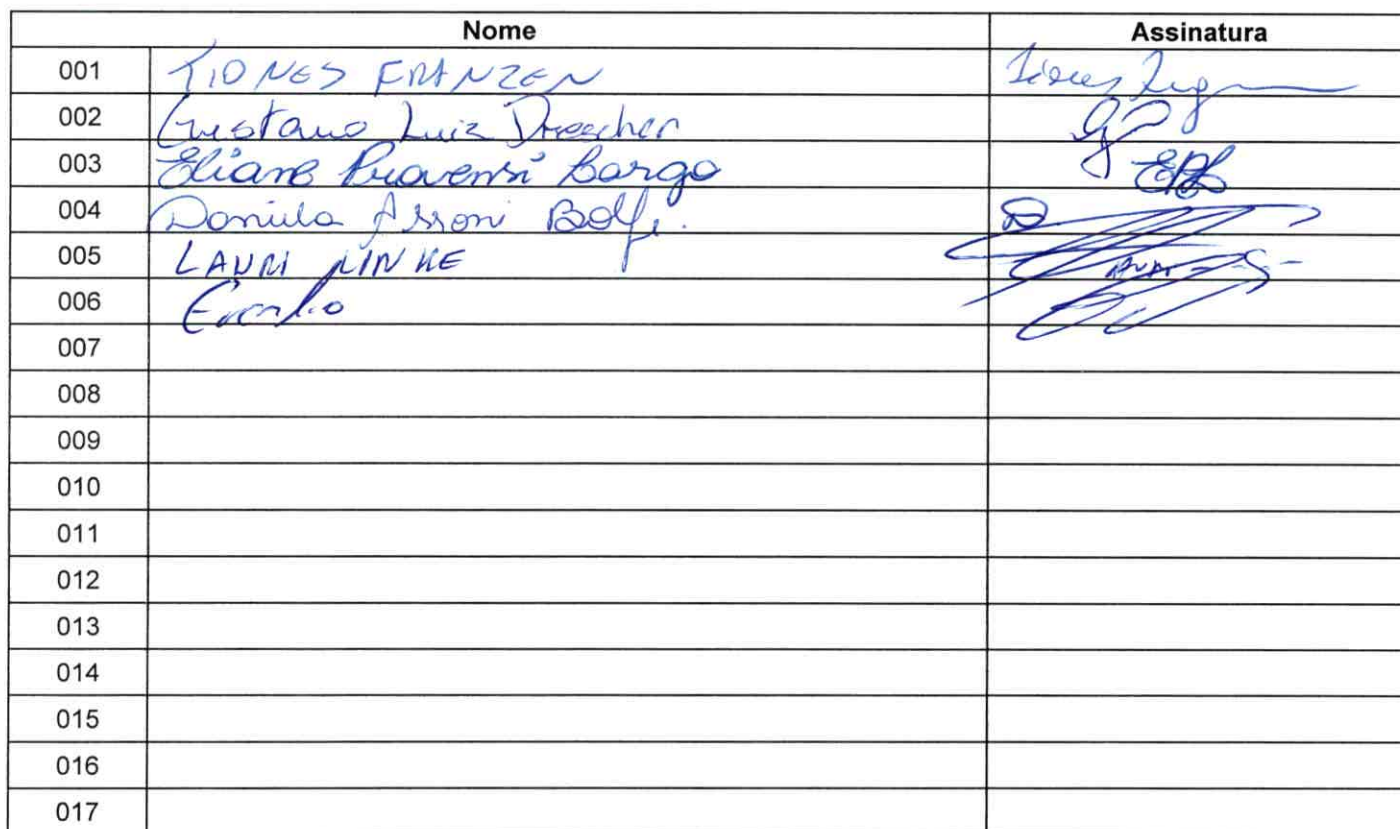 Nome Assinatura
001 TIONES FRANZEN
002 Gustavo Luiz Drescher
003 Eliane Provensi Borga
004 Daniela Assoni Bolfe.
005 LAURI LINKE
006
007
008
009
010
011
012
013
014
015
016
017